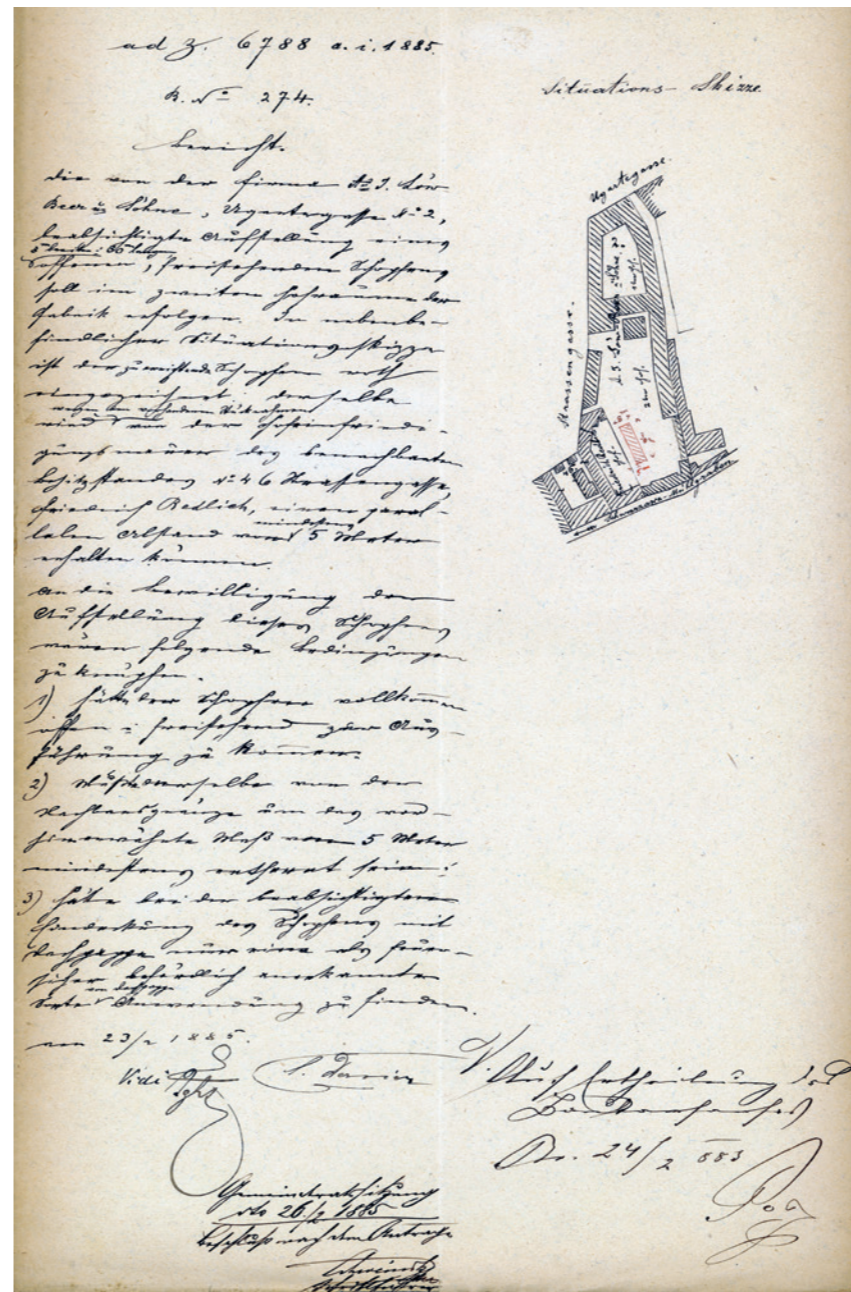 ad Z. 6788 a. i. 1885.
B. No 274.
Bericht.
Die von der Firma Aª J. Löw
Beer's Söhne, Ugartegasse No 2,
beabsichtigte Aufstellung eines
5 breiten : 
offenen, freistehenden Schopfens
soll im zweiten Hofraume der
Fabrik erfolgen. In nebenbe-
findlicher Situationsskizze
ist der zu errichtende Schopfen roth
eingezeichnet; derselbe
wird von der Hofeinfriedi-
gungsmauer des benachbarten
Besitzstandes No 46 Strassengasse,
Friedrich Redlich, einen paral-
lelen Abstand von mindestens 5 Meter
erhalten können.
An die Bewilligung der
Aufstellung dieses Schopfens
wären folgende Bedingungen
zu knüpfen.
1) hätte der Schopfen vollkommen
offen u freistehend zur Aus-
führung zu kommen.
2) Müßte derselbe von der
Nachbarsgränze um das vor-
hinerwähnte Maß von 5 Meter
mindestens entfernt sein;
3) hätte bei der beabsichtigten
Eindeckung des Schopfens mit
Dachpappe nur eine als feuer-
sicher behördlich anerkannte
Sorte von Dachpappe Anwendung zu finden.
am 23/2 1885.
Vidi
Situations-Skizze.
Ugartegasse.
Strassengasse.
Schwarzawa-Mühlgraben
Auf Ertheilung des
Bauconsenses
Br. 24/2 885
Gemeindrathsitzung
dto 26./2 1885
Beschluß nach dem Antrage
Schriftführer